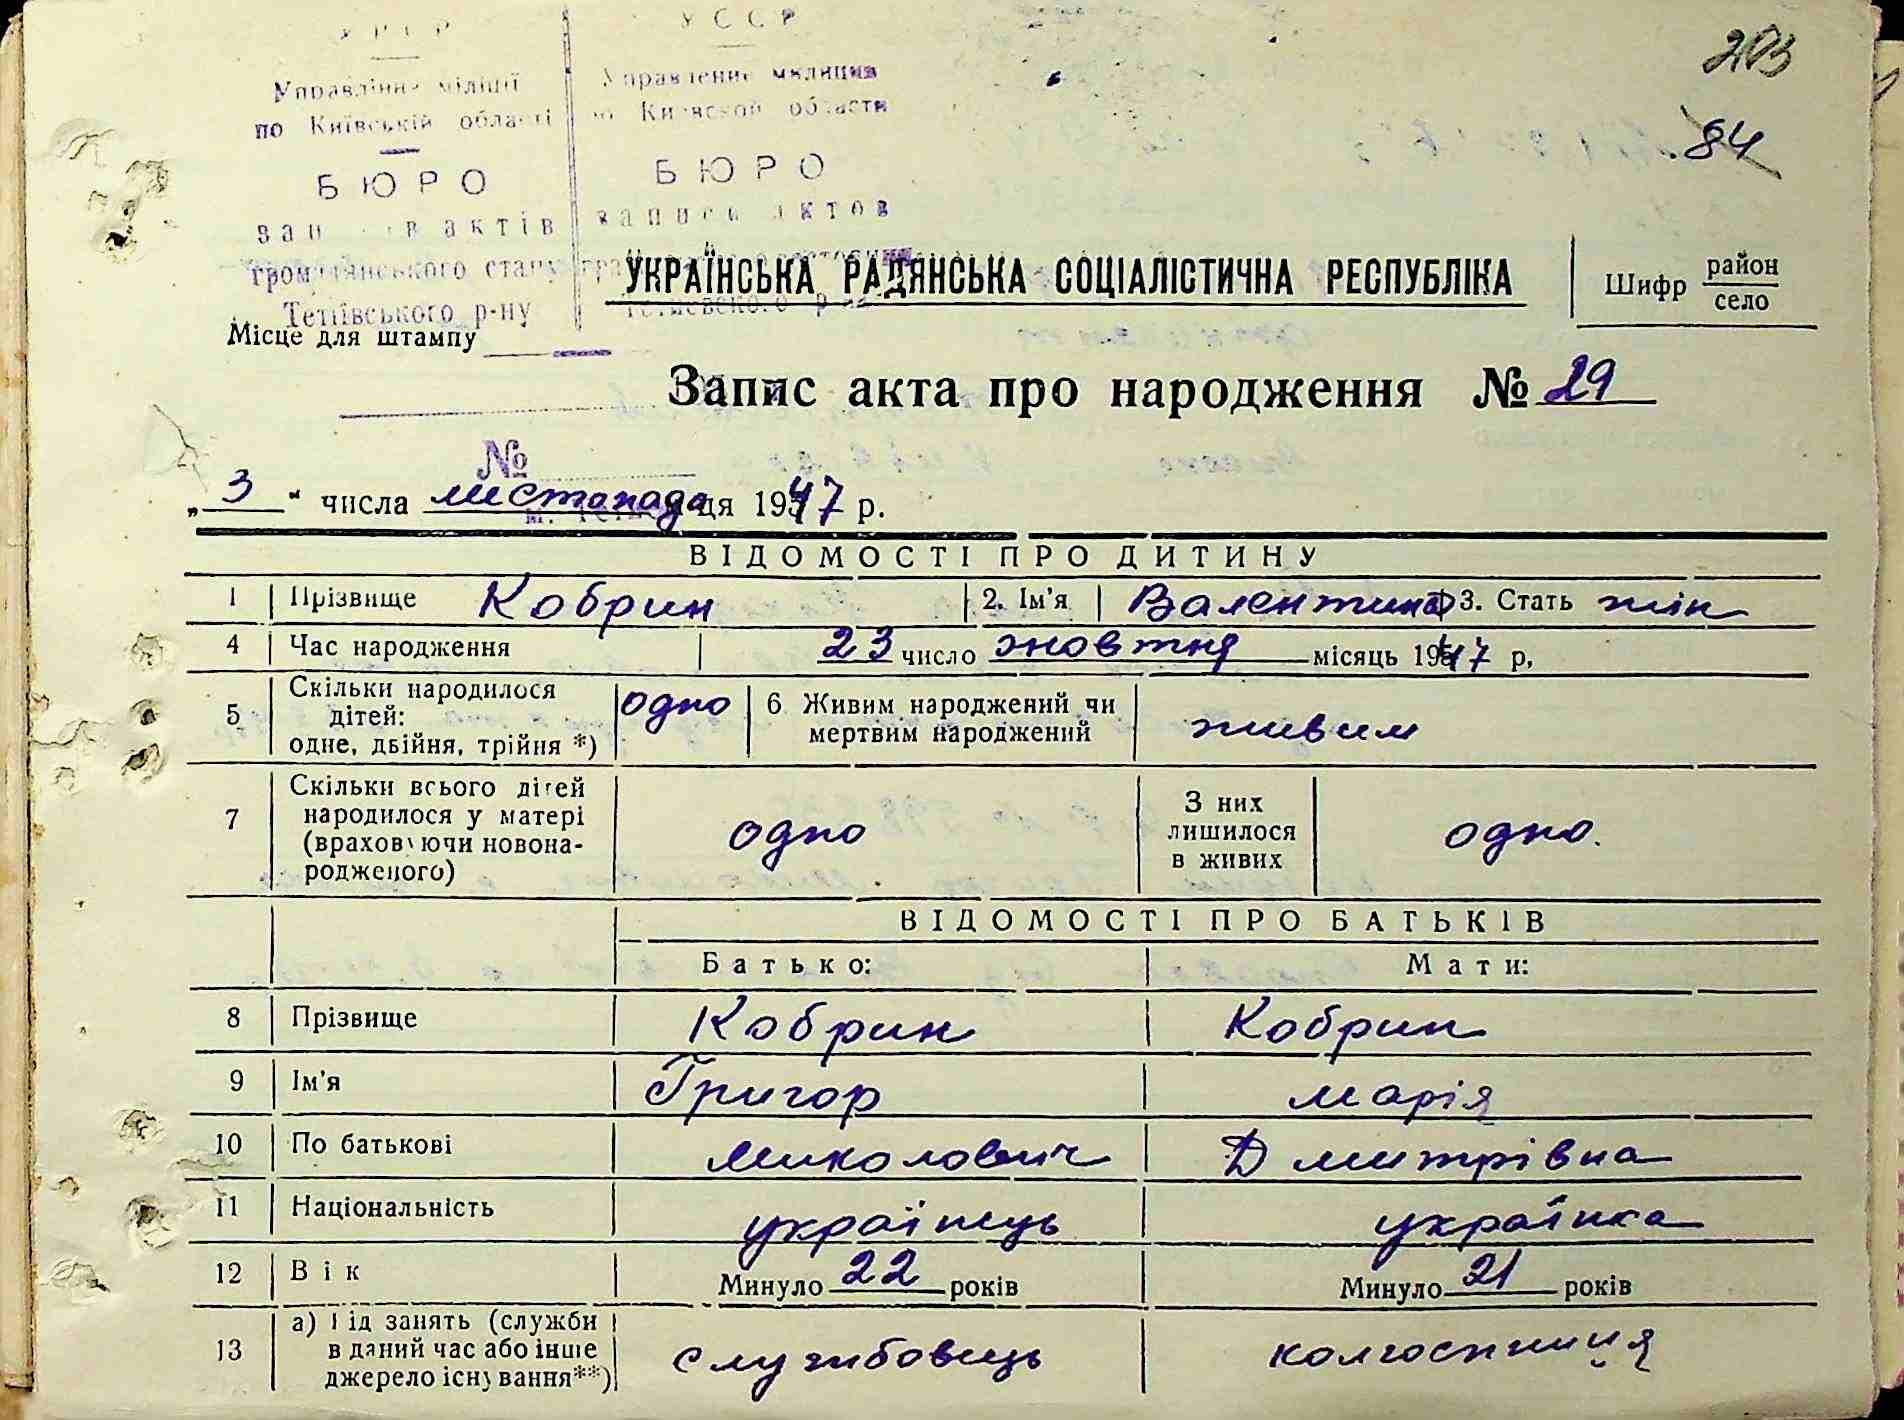 203
84
УРСР
Управління міліції
по Київській області
БЮРО
актів
громадянського стану
Тетіївського р-ну
УССР
Управление милиции
по Киевской области
БЮРО
записи актов
УКРАЇНСЬКА РАДЯНСЬКА СОЦІАЛІСТИЧНА РЕСПУБЛІКА
Шифр район
село
Місце для штампу
Запис акта про народження № 29
№
„3“ числа листопада ця 1947 р.
ВІДОМОСТІ ПРО ДИТИНУ
1 Прізвище Кобрин 2. Ім'я Валентина 3. Стать жін
4 Час народження 23 число жовтня місяць 1947 р,
5 Скільки народилося
дітей:
одне, двійня, трійня *) одно 6 Живим народжений чи
мертвим народжений живим
7 Скільки всього дітей
народилося у матері
(враховуючи новона-
родженого) одно З них
лишилося
в живих одно.
ВІДОМОСТІ ПРО БАТЬКІВ
Батько: Мати:
8 Прізвище Кобрин Кобрин
9 Ім'я Григор Марія
10 По батькові Миколович Дмитрівна
11 Національність українець українка
12 Вік Минуло 22 років Минуло 21 років
13 а) Рід занять (служби
в даний час або інше
джерело існування**) службовець колгоспниця